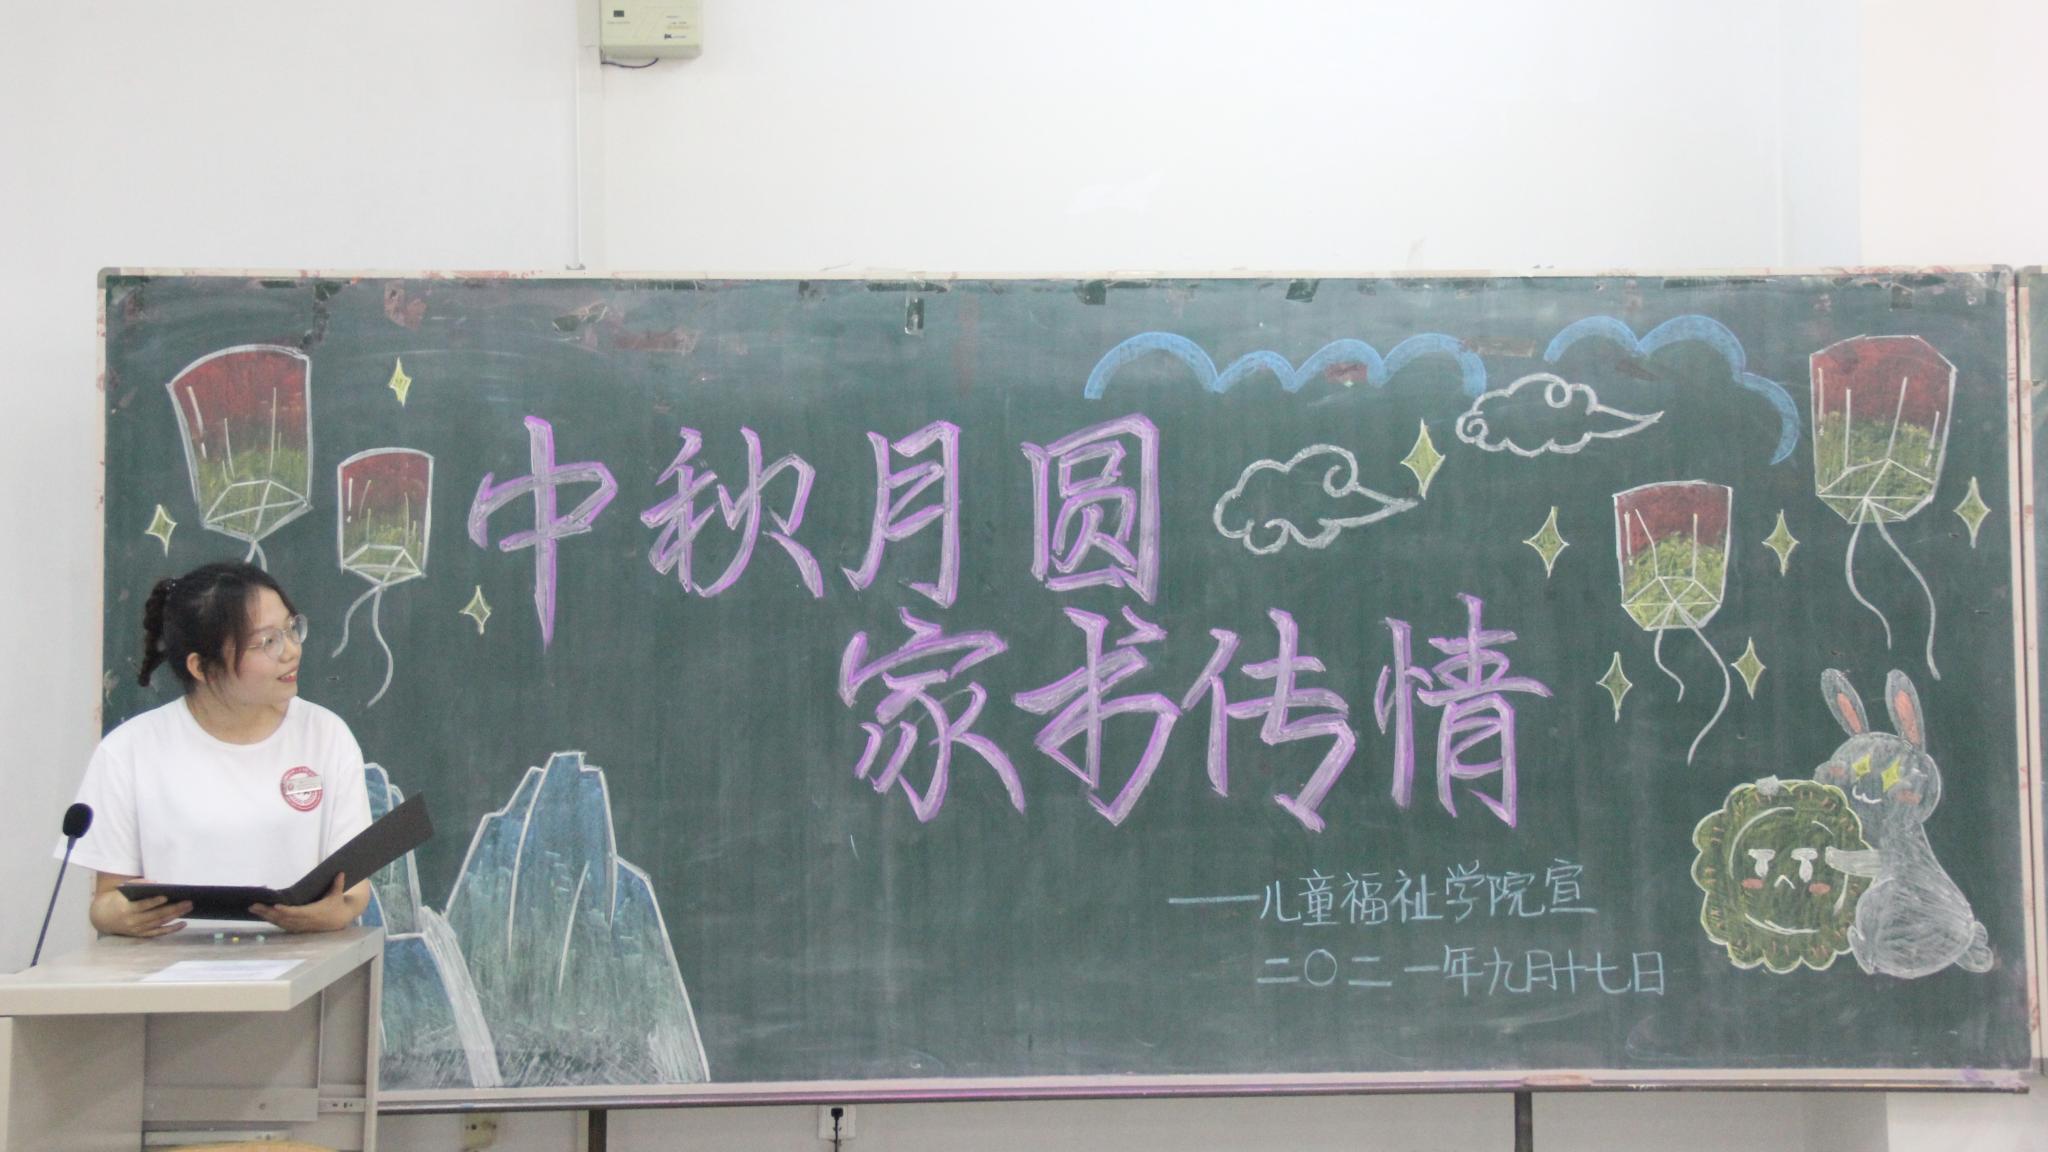 中秋月圆
家书传情
——儿童福祉学院宣
二〇二一年九月十七日